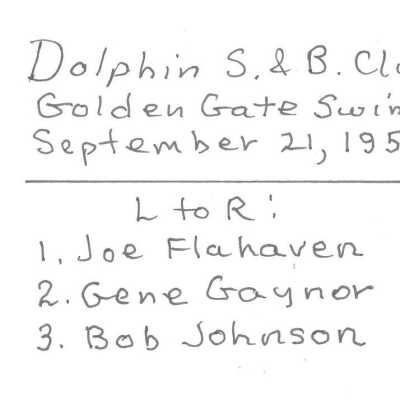 Dolphin S. & B. Clu
Golden Gate Swim
September 21, 195
L to R:
1. Joe Flahaven
2. Gene Gaynor
3. Bob Johnson